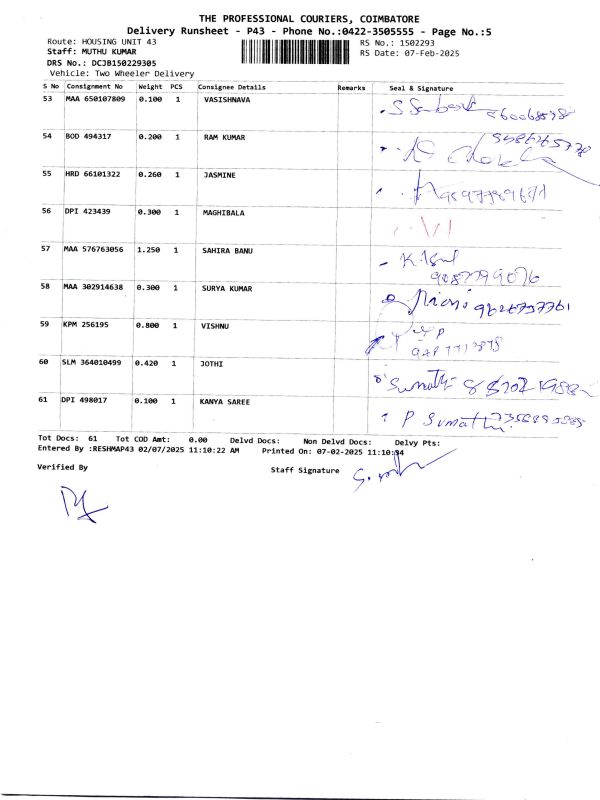 THE PROFESSIONAL COURIERS, COIMBATORE
Delivery Runsheet - P43 - Phone No.:0422-3505555 - Page No.:5
Route: HOUSING UNIT 43 RS No.: 1502293
Staff: MUTHU KUMAR RS Date: 07-Feb-2025
DRS No.: DCJB150229305
Vehicle: Two Wheeler Delivery
S No Consignment No Weight PCS Consignee Details Remarks Seal & Signature
53 MAA 650107809 0.100 1 VASISHNAVA
54 BOD 494317 0.200 1 RAM KUMAR
55 HRD 66101322 0.260 1 JASMINE
56 DPI 423439 0.300 1 MAGHIBALA
57 MAA 576763056 1.250 1 SAHIRA BANU
58 MAA 302914638 0.300 1 SURYA KUMAR
59 KPM 256195 0.800 1 VISHNU
60 SLM 364010499 0.420 1 JOTHI Sumathi
61 DPI 498017 0.100 1 KANYA SAREE P Sumathi
Tot Docs: 61 Tot COD Amt: 0.00 Delvd Docs: Non Delvd Docs: Delvy Pts:
Entered By :RESHMAP43 02/07/2025 11:10:22 AM Printed On: 07-02-2025 11:10:34
Verified By Staff Signature